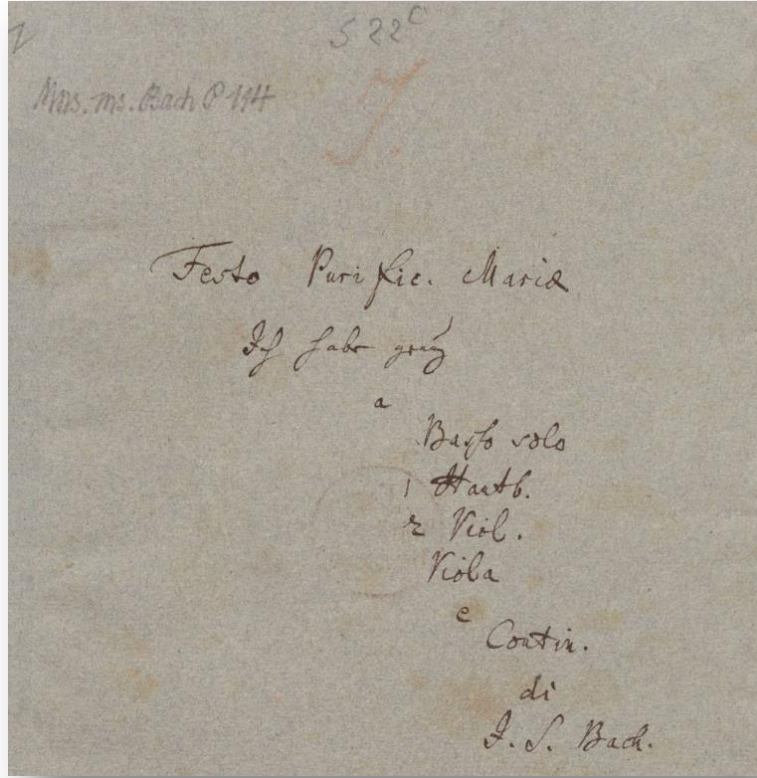 S 22c
Mus. ms. Bach P 114
Festo Purific. Mariæ
Ich habe genug
a
Basso solo
1 Hautb.
2 Viol.
Viola
e
Contin.
di
J. S. Bach.